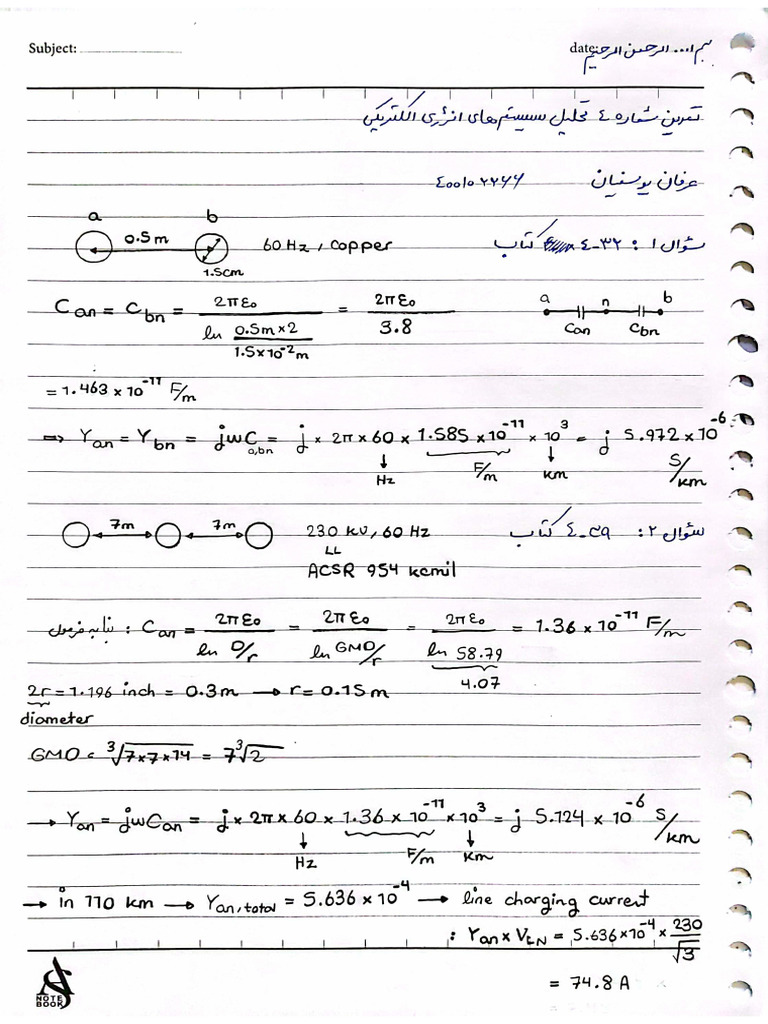 Subject:
date:
بسم ا... الرحمن الرحیم
تمرین شماره ٤ تحلیل سیستم های انرژی الکتریکی
عرفان یوسفیان ٤۰۰۱۰۲۲۶۶
a b
0.5m
1.5cm
60 Hz, copper
سؤال ۱ : ۳۲-٤ کتاب
Can = Cbn = 2πε₀ / (ln (0.5m×2 / 1.5×10⁻²m)) = 2πε₀ / 3.8
a n b
Can Cbn
= 1.463 × 10⁻¹¹ F/m
⇒ Yan = Ybn = jωC a,bn = j × 2π × 60 × 1.585 × 10⁻¹¹ × 10³ = j 5.972 × 10⁻⁶ S/km
Hz F/m km
7m 7m
230 kV, 60 Hz
LL
ACSR 954 kcmil
سؤال ۲ : ۳۹-٤ کتاب
بنا به فرمول : Can = 2πε₀ / (ln D/r) = 2πε₀ / (ln GMD/r) = 2πε₀ / (ln 58.79) = 1.36 × 10⁻¹¹ F/m
4.07
2r = 1.196 inch = 0.3m → r = 0.15m
diameter
GMD = ∛(7×7×14) = 7∛2
→ Yan = jωCan = j × 2π × 60 × 1.36 × 10⁻¹¹ × 10³ = j 5.124 × 10⁻⁶ S/km
Hz F/m km
→ in 110 km → Yan,total = 5.636 × 10⁻⁴ → line charging current
: Yan × VLN = 5.636×10⁻⁴ × 230/√3
= 74.8 A
NOTE
BOOK